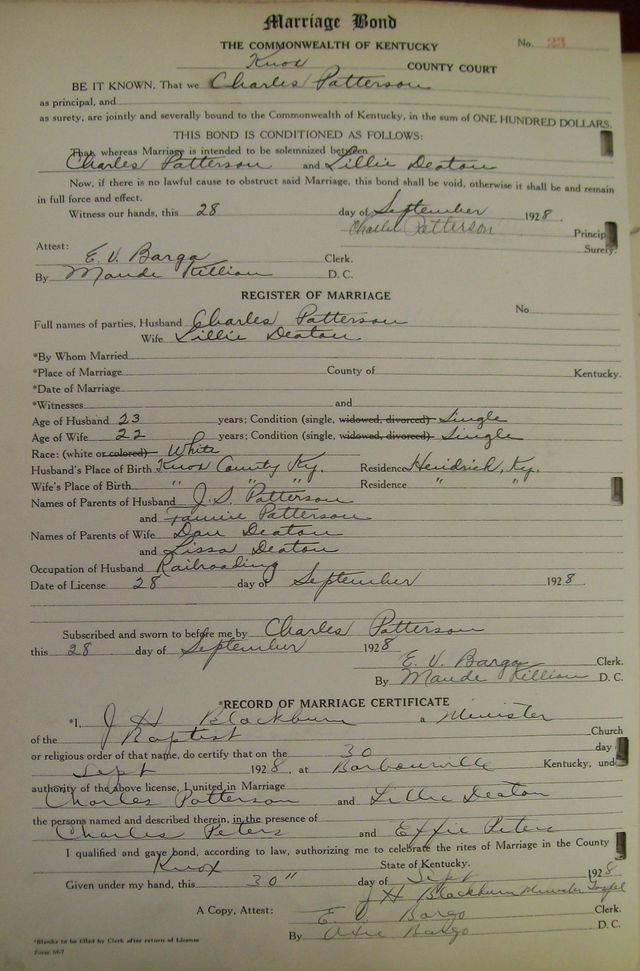 Marriage Bond
THE COMMONWEALTH OF KENTUCKY No. 23
Knox COUNTY COURT
BE IT KNOWN, That we Charles Patterson
as principal, and
as surety, are jointly and severally bound to the Commonwealth of Kentucky, in the sum of ONE HUNDRED DOLLARS.
THIS BOND IS CONDITIONED AS FOLLOWS:
That whereas Marriage is intended to be solemnized between
Charles Patterson and Lillie Deaton
Now, if there is no lawful cause to obstruct said Marriage, this bond shall be void, otherwise it shall be and remain
in full force and effect.
Witness our hands, this 28 day of September 1928.
Charlie Patterson Princip
Surety.
Attest:
E. V. Bargo Clerk.
By Maude Killion D. C.
REGISTER OF MARRIAGE
No.
Full names of parties, Husband Charles Patterson
Wife Lillie Deaton
*By Whom Married
*Place of Marriage County of Kentucky.
*Date of Marriage
*Witnesses and
Age of Husband 23 years; Condition (single, widowed, divorced) Single
Age of Wife 22 years; Condition (single, widowed, divorced) Single
Race: (white or colored) White
Husband's Place of Birth Knox County Ky. Residence Heidrick, Ky.
Wife's Place of Birth " " " Residence " "
Names of Parents of Husband J. S. Patterson
and Patterson
Names of Parents of Wife Dan Deaton
and Lissa Deaton
Occupation of Husband Railroading
Date of License 28 day of September 1928.
Subscribed and sworn to before me by Charles Patterson
this 28 day of September 1928
E. V. Bargo Clerk.
By Maude Killion D. C.
*RECORD OF MARRIAGE CERTIFICATE
*I, J H Blackburn a Minister
of the Baptist Church
or religious order of that name, do certify that on the 30 day
Sept 1928, at Barbourville Kentucky, unde
authority of the above license, I united in Marriage
Charles Patterson and Lillie Deaton
the persons named and described therein, in the presence of
Charles Peters and Effie Peters
I qualified and gave bond, according to law, authorizing me to celebrate the rites of Marriage in the County
Knox State of Kentucky.
Given under my hand, this 30" day of Sept 1928
J H Blackburn Minister Gospel
A Copy, Attest: E. V. Bargo Clerk.
By Bargo D. C.
*Blanks to be filled by Clerk after return of License
Form 56-7